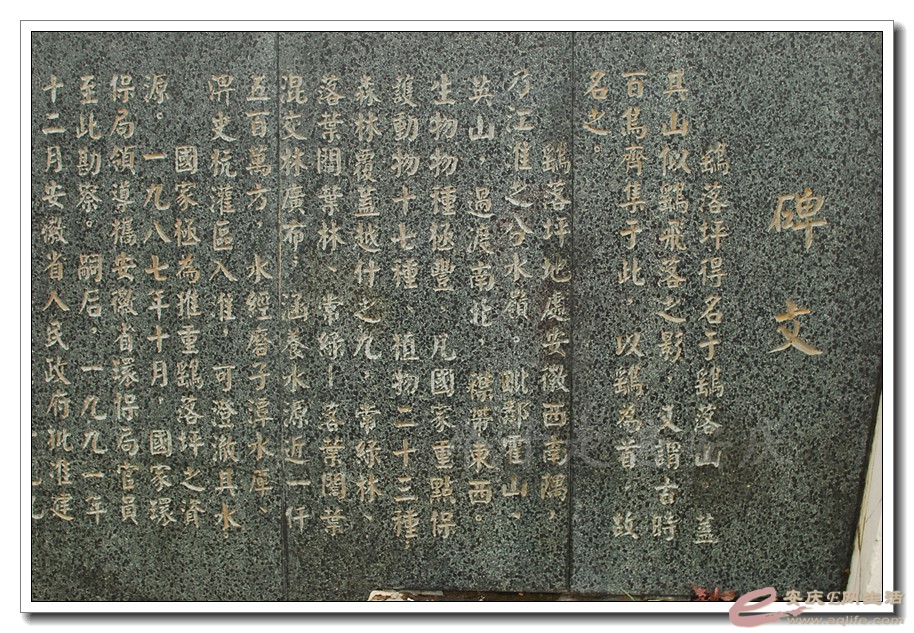 碑文
鷂落坪得名于鷂落山，蓋
其山似鷂飛落之影，又謂古時
百鳥齊集于此，以鷂為首，故
名之。
鷂落坪地處安徽西南隅，
乃江淮之分水嶺。毗鄰霍山、
英山，過渡南北，襟帶東西。
生物物種極豐、凡國家重點保
護動物十七種、植物二十三種，
森林覆蓋越什之九，常綠林、
落葉闊葉林、常綠—落葉闊葉
混交林廣布，涵養水源近一仟
五百萬方，水經磨子潭水庫、
淠史杭灌區入淮，可澄澈其水
國家極為推重鷂落坪之資
源。一九八七年十月，國家環
保局領導攜安徽省環保局官員
至此勘察。嗣后，一九九一年
十二月安徽省人民政府批准建
安庆E网生活
www.aqlife.com